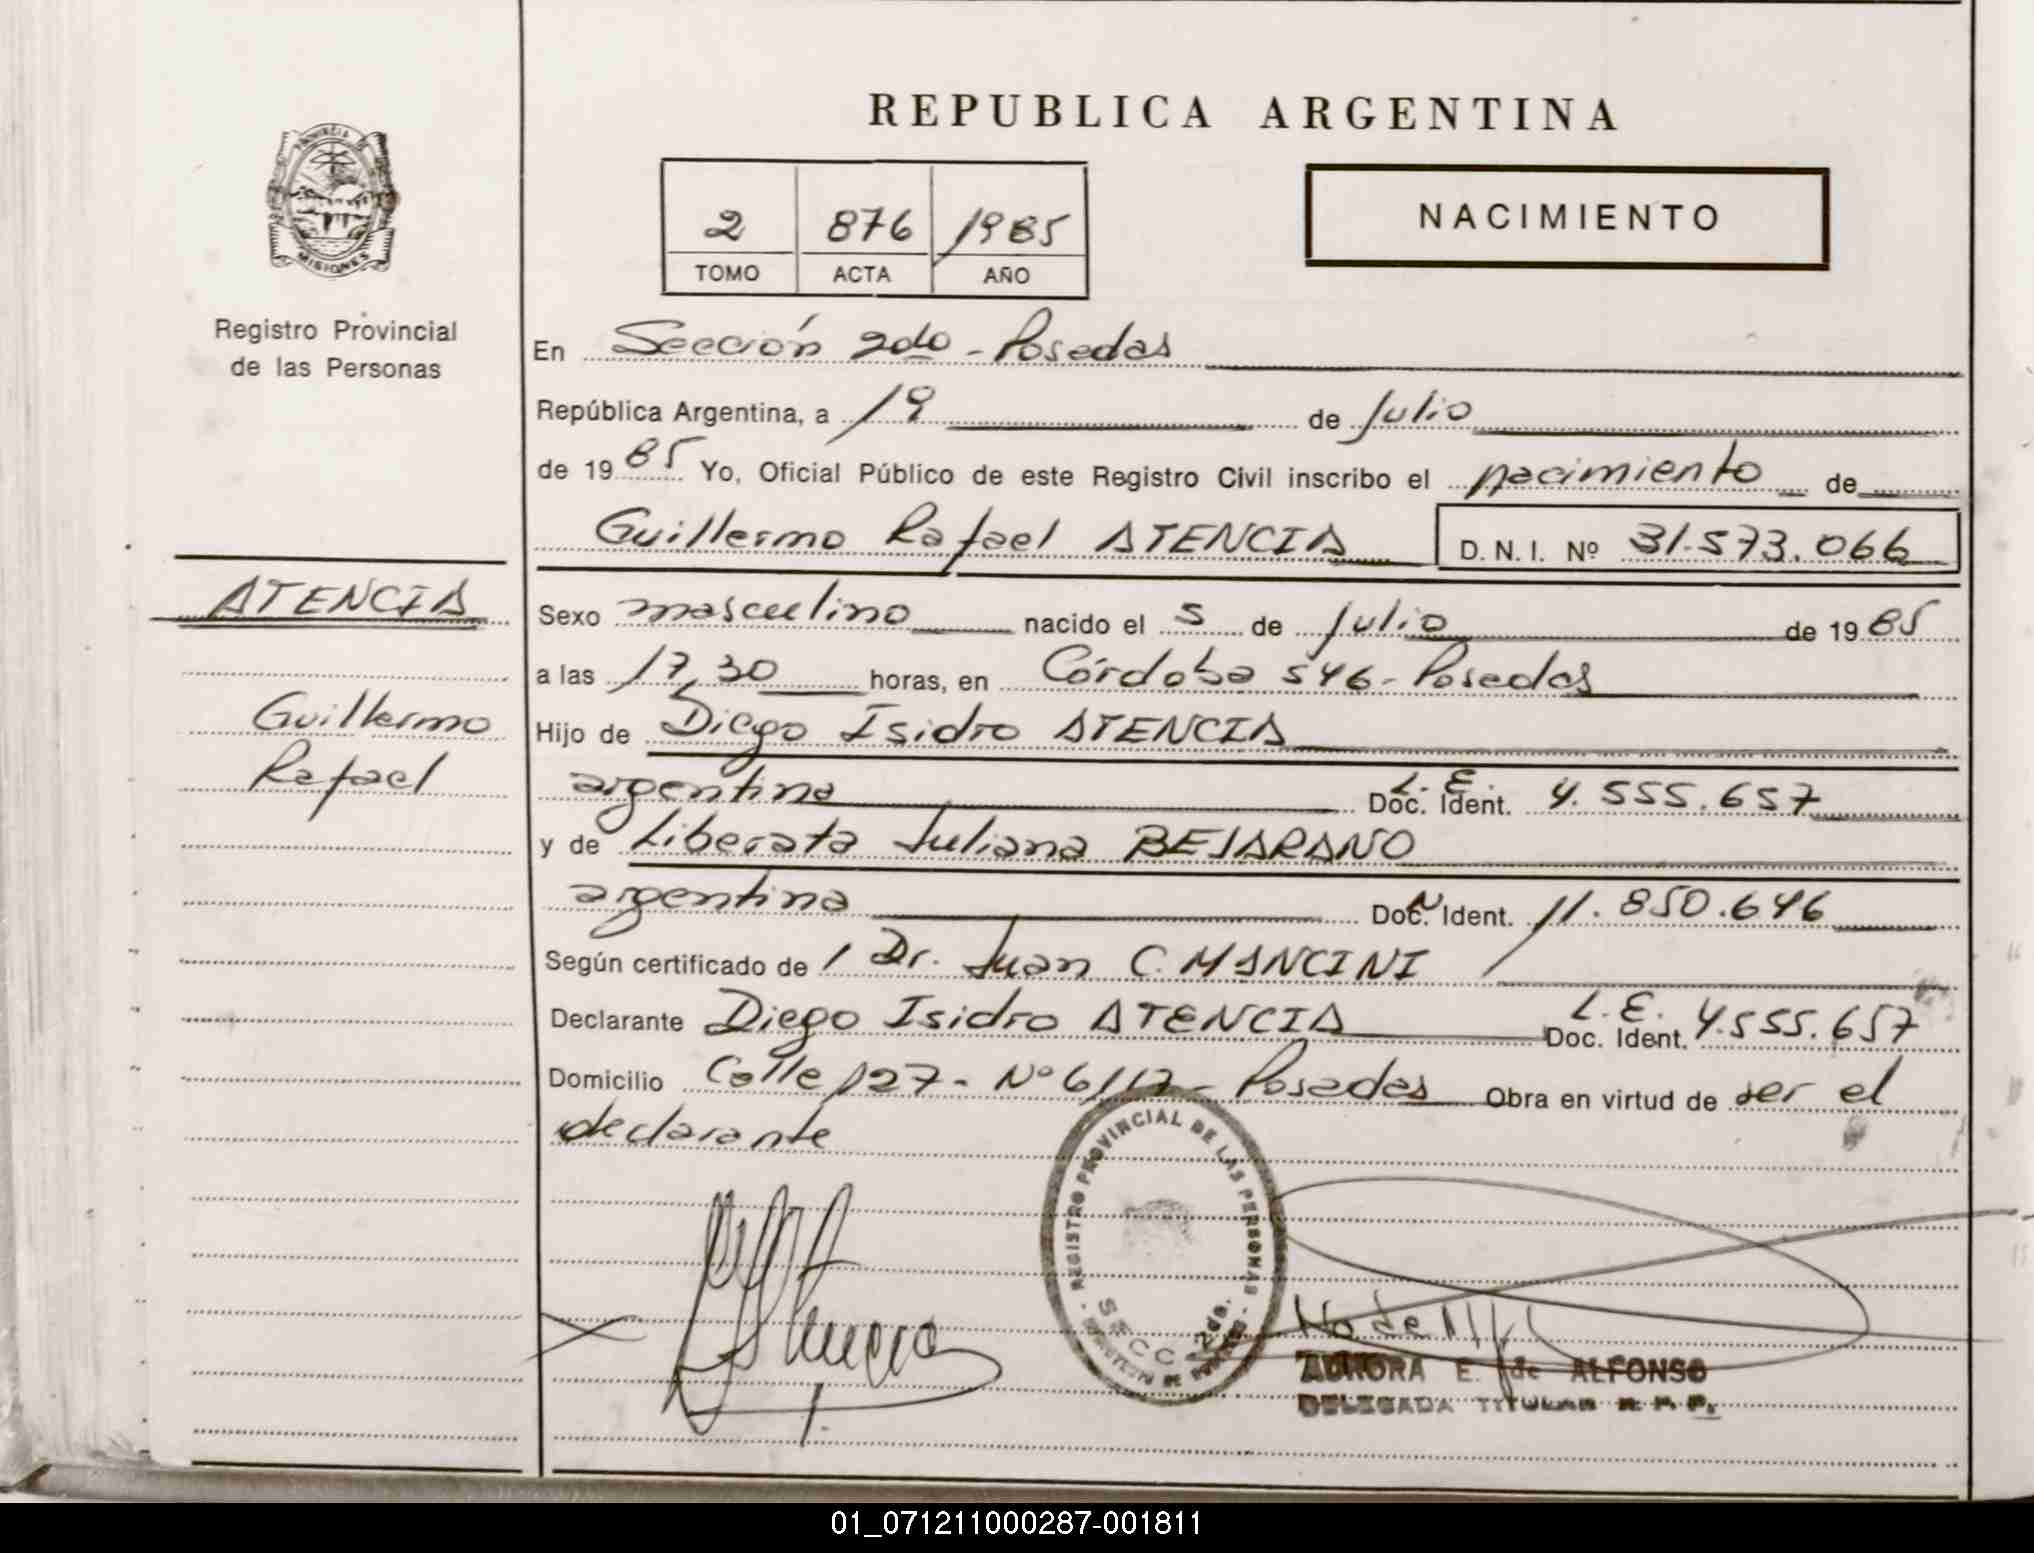 REPUBLICA ARGENTINA
PROVINCIA DE
MISIONES
Registro Provincial
de las Personas
2 876 1985
TOMO ACTA AÑO
NACIMIENTO
En Sección 2do - Posadas
República Argentina, a 19 de Julio
de 1985 Yo, Oficial Público de este Registro Civil inscribo el nacimiento de
Guillermo Rafael ATENCIA D. N. I. Nº 31.573.066
ATENCIA
Guillermo
Rafael
Sexo masculino nacido el 5 de Julio de 1985
a las 17,30 horas, en Córdoba 546 - Posadas
Hijo de Diego Isidro ATENCIA
argentina Doc. Ident. L. E. 4.555.657
y de Liberata Juliana BEJARANO
argentina Doc. Ident. 11.850.646
Según certificado de / Dr. Juan C. MANCINI
Declarante Diego Isidro ATENCIA Doc. Ident. L. E. 4.555.657
Domicilio Calle 127 - Nº 6117 - Posadas Obra en virtud de ser el
declarante
REGISTRO PROVINCIAL DE LAS PERSONAS
SECC. 2da.
AURORA E. de ALFONSO
DELEGADA TITULAR R. P. P.
01_071211000287-001811